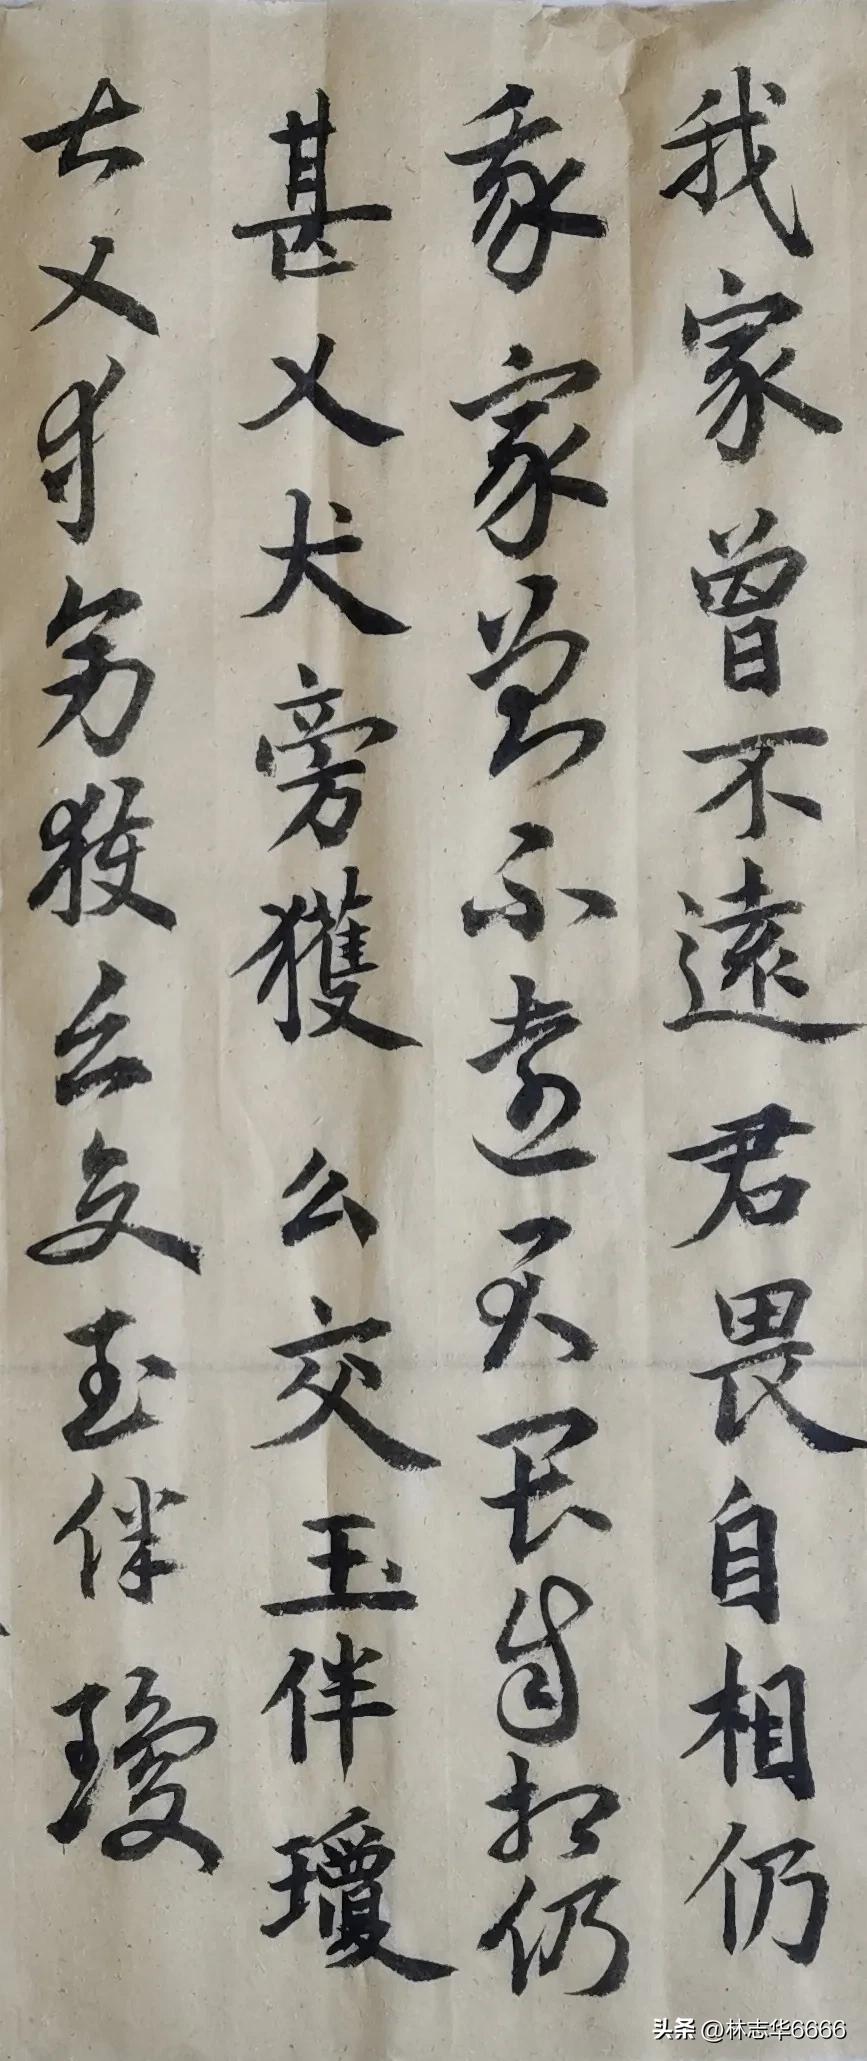 我家曾不遠君畏自相仍
我家曾不遠君畏自相仍
甚乂犬旁獲么交玉伴瓊
甚乂犬旁獲么交玉伴瓊
头条 @林志华6666